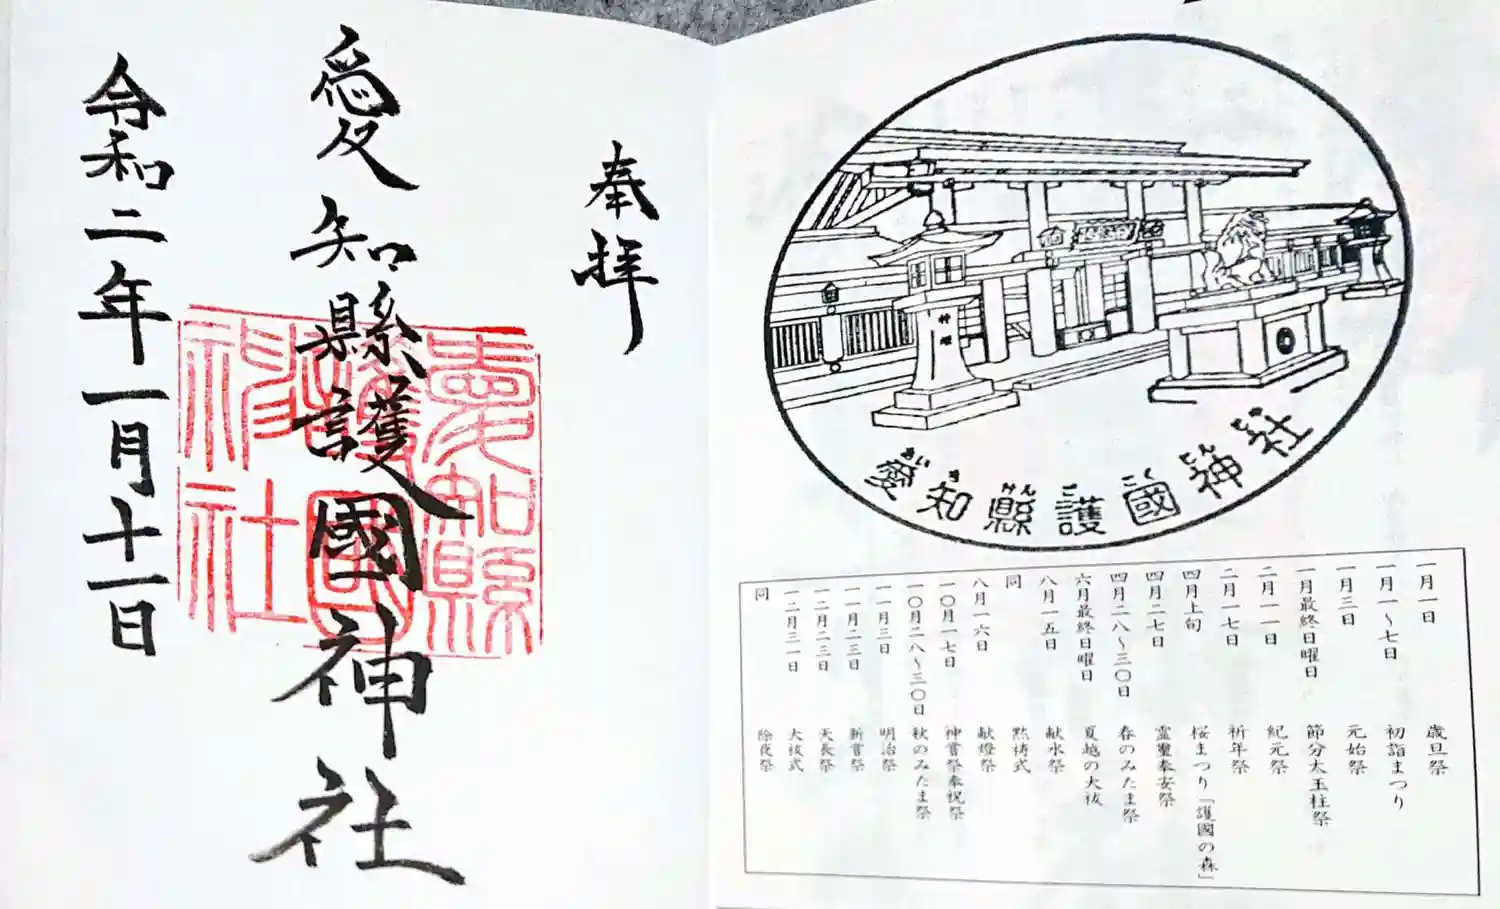 奉拝
愛知縣護國神社
愛知縣
護國
神社
令和二年一月十一日
神燈
あいちけんごこくじんじゃ
愛知縣護國神社
一月一日 歳旦祭
一月一～七日 初詣まつり
一月三日 元始祭
一月最終日曜日 節分大玉柱祭
二月一一日 紀元祭
二月一七日 祈年祭
四月上旬 桜まつり「護國の森」
四月二七日 霊璽奉安祭
四月二八～三〇日 春のみたま祭
六月最終日曜日 夏越の大祓
八月一五日 献水祭
同 黙祷式
八月一六日 献燈祭
一〇月一七日 神嘗祭奉祝祭
一〇月二八～三〇日 秋のみたま祭
一一月三日 明治祭
一一月二三日 新嘗祭
一二月二三日 天長祭
一二月三一日 大祓式
同 除夜祭